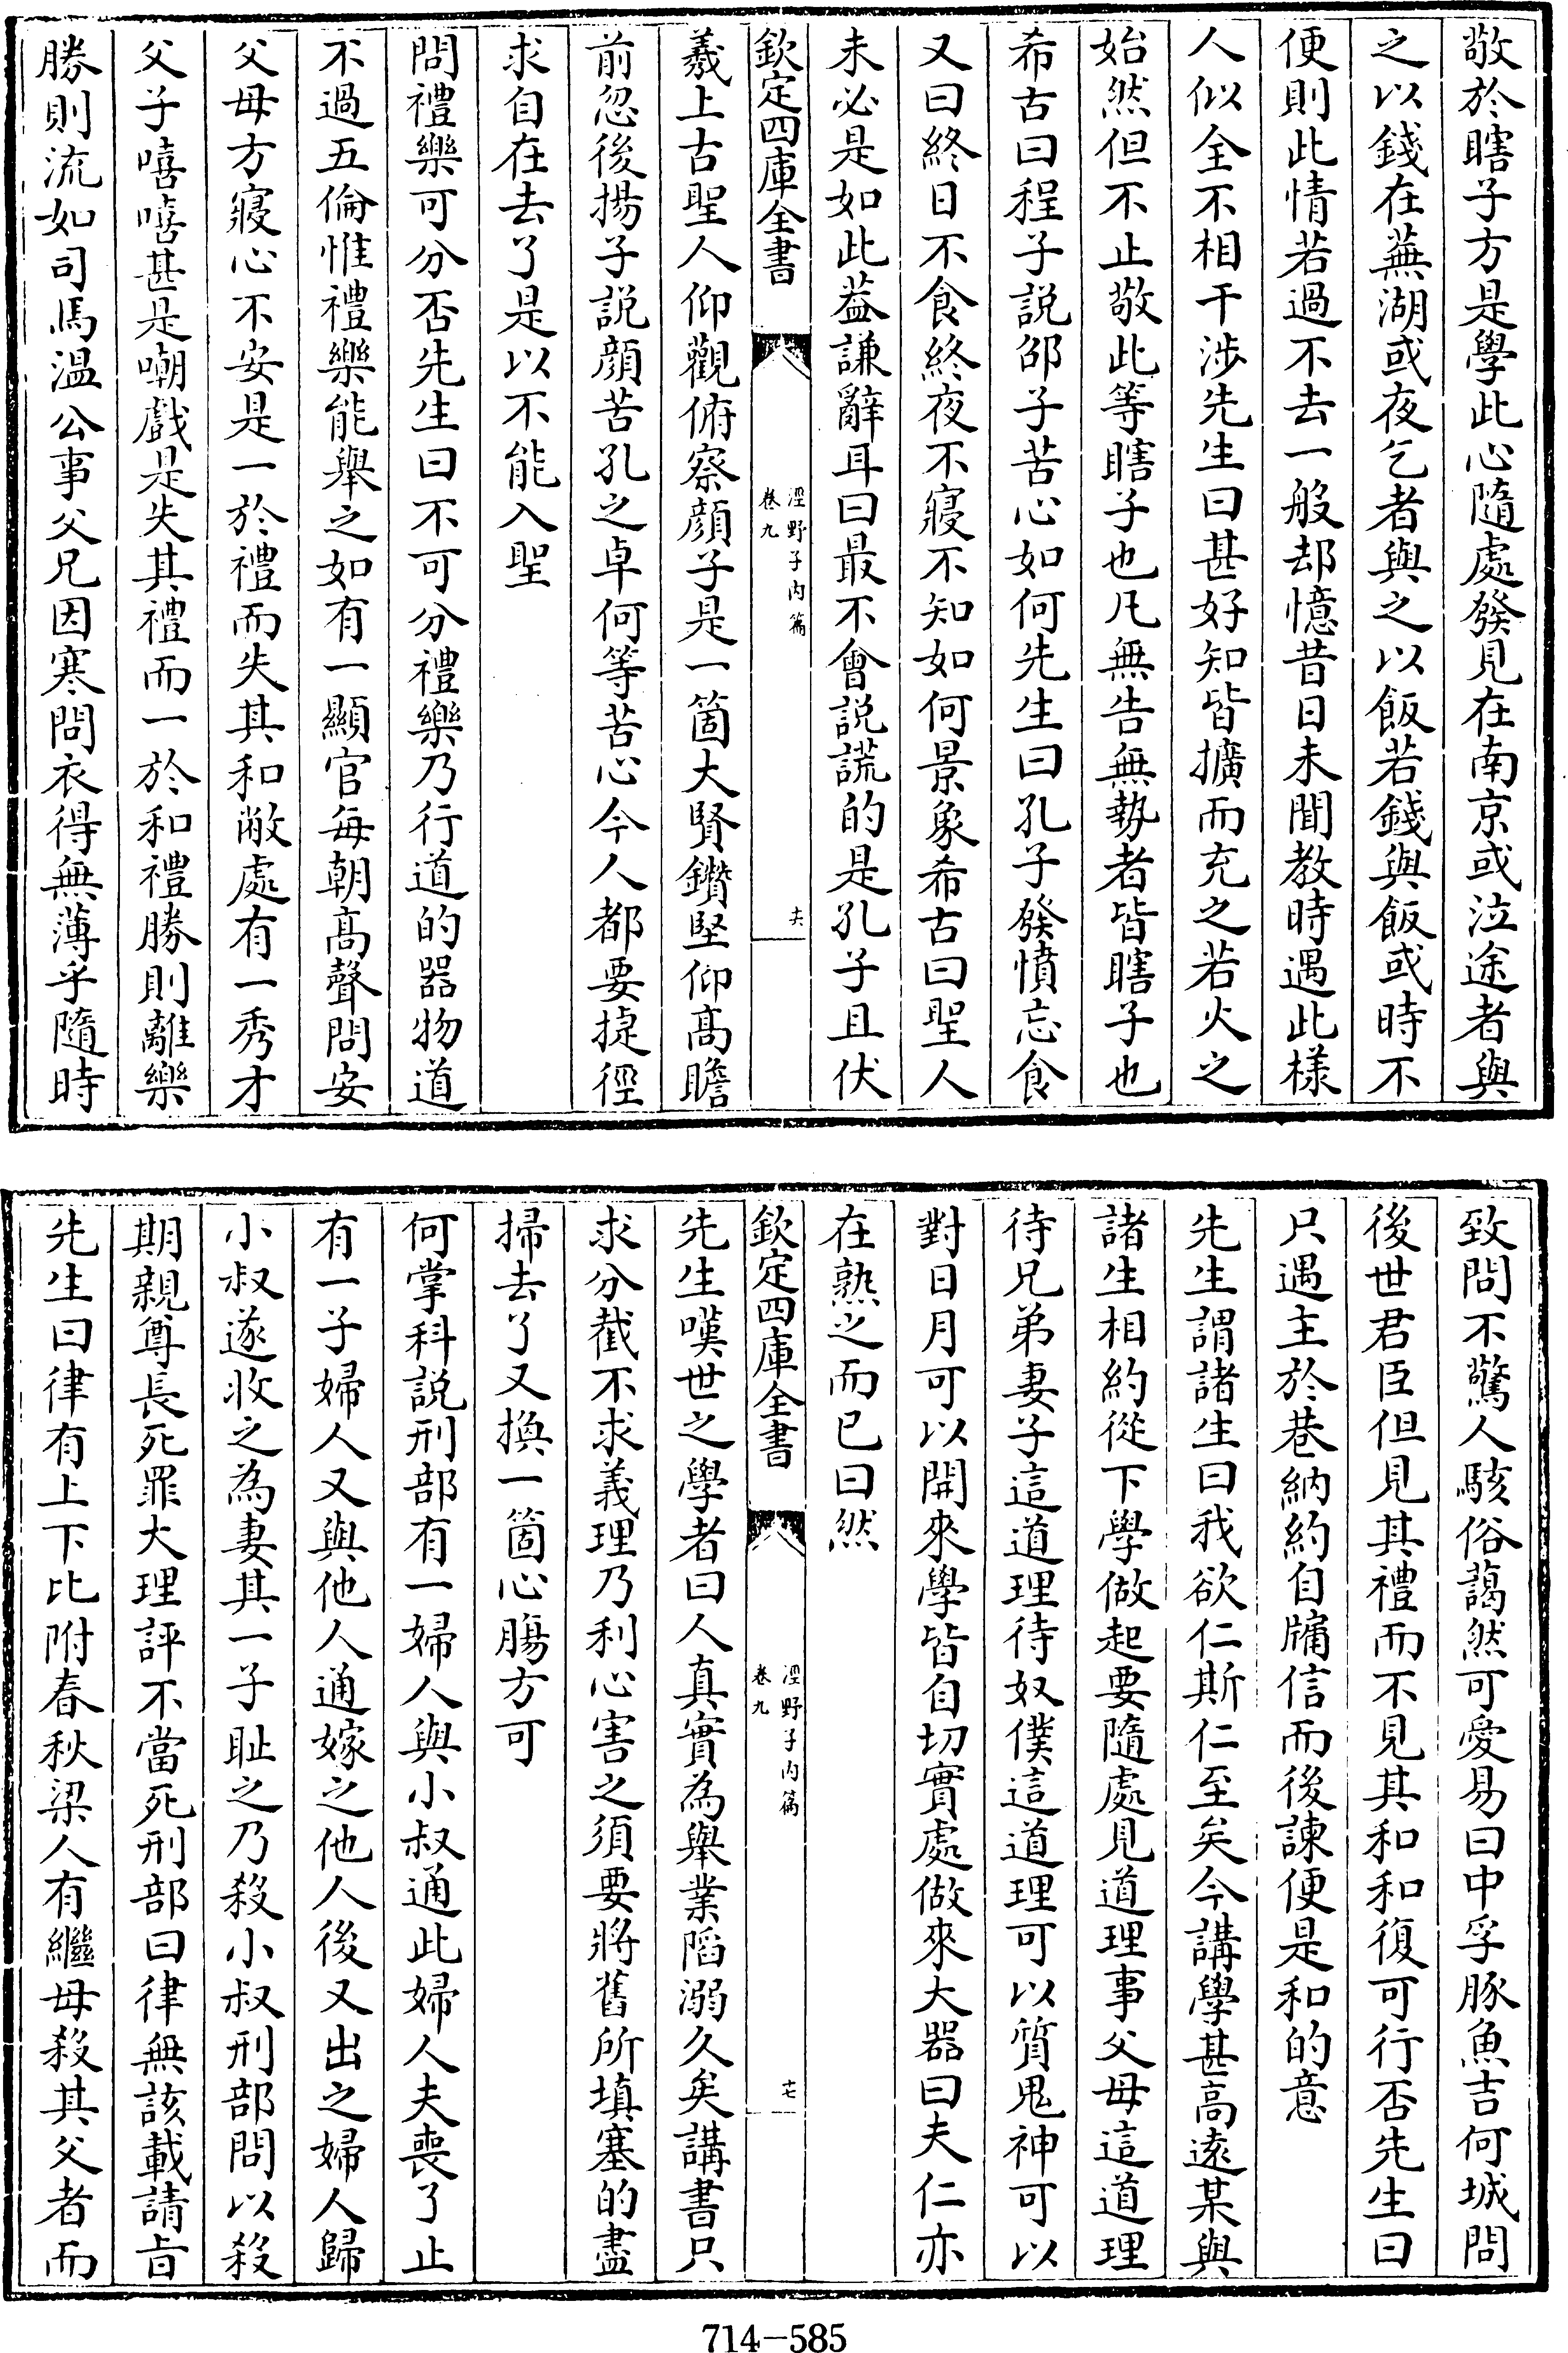 敬於瞎子方是學此心隨處發見在南京或泣途者與
之以錢在蕪湖或夜乞者與之以飯若錢與飯或時不
便則此情若過不去一般却憶昔日未聞教時遇此様
人似全不相干涉先生曰甚好知皆擴而充之若火之
始然但不止敬此等瞎子也凡無告無勢者皆瞎子也
希古曰程子說邵子苦心如何先生曰孔子發憤忘食
又曰終日不食終夜不寢不知如何景象希古曰聖人
未必是如此葢謙辭耳曰最不會說謊的是孔子且伏
欽定四庫全書
涇野子内篇
卷九
十六
羲上古聖人仰觀俯察顔子是一箇大賢鑽堅仰髙瞻
前忽後揚子說顔苦孔之卓何等苦心今人都要捷徑
求自在去了是以不能入聖
問禮樂可分否先生曰不可分禮樂乃行道的器物道
不過五倫惟禮樂能舉之如有一顯官每朝髙聲問安
父母方寢心不安是一於禮而失其和敝處有一秀才
父子嘻嘻甚是嘲戲是失其禮而一於和禮勝則離樂
勝則流如司馬温公事父兄因寒問衣得無薄乎隨時
致問不驚人駭俗藹然可愛易曰中孚豚魚吉何城問
後世君臣但見其禮而不見其和和復可行否先生曰
只遇主於巷納約自牖信而後諫便是和的意
先生謂諸生曰我欲仁斯仁至矣今講學甚高遠某與
諸生相約從下學做起要隨處見道理事父母這道理
待兄弟妻子這道理待奴僕這道理可以質鬼神可以
對日月可以開來學皆自切實處做來大器曰夫仁亦
在熟之而已曰然
欽定四庫全書
涇野子内篇
卷九
十七
先生嘆世之學者曰人真實為舉業陷溺久矣講書只
求分截不求義理乃利心害之須要將舊所填塞的盡
掃去了又換一箇心腸方可
何掌科說刑部有一婦人與小叔通此婦人夫喪了止
有一子婦人又與他人通嫁之他人後又出之婦人歸
小叔遂收之為妻其一子耻之乃殺小叔刑部問以殺
期親尊長死罪大理評不當死刑部曰律無該載請旨
先生曰律有上下比附春秋梁人有繼母殺其父者而
714-585